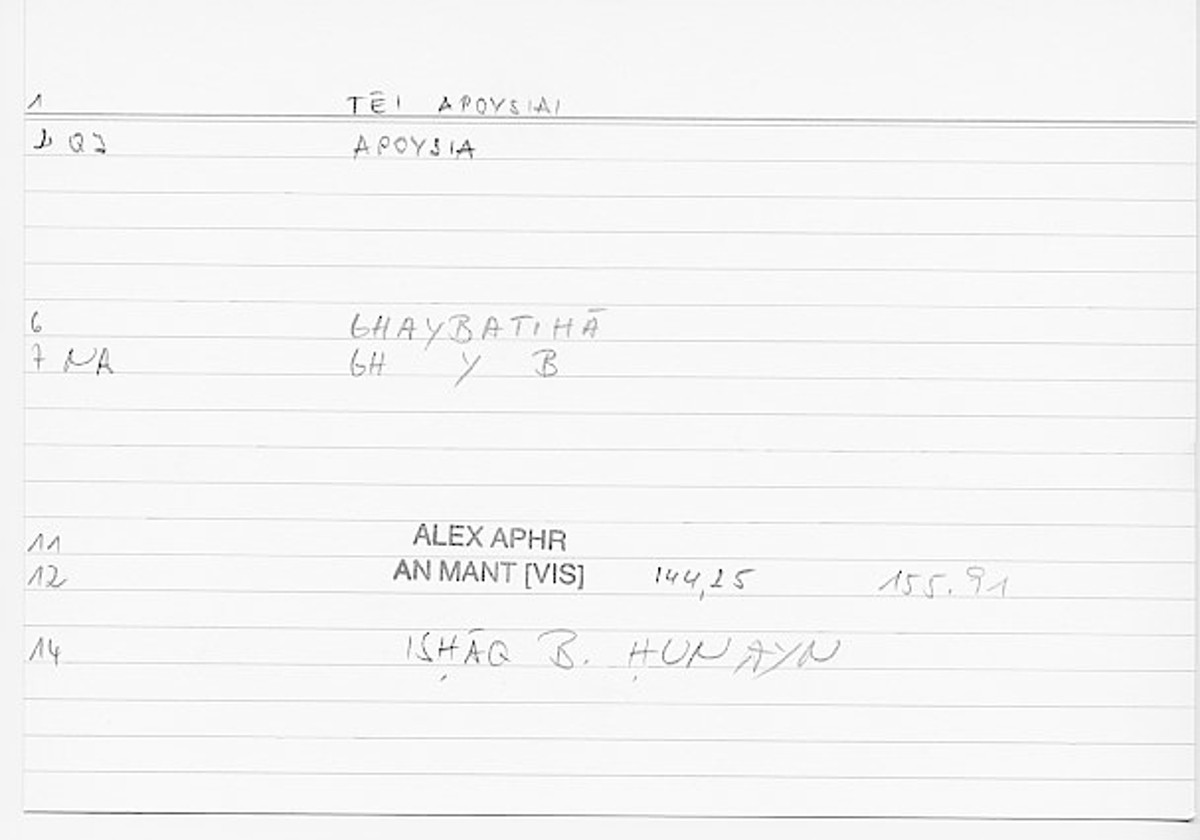 1 TĒI APOYSIAI
2 QJ APOYSIA
6 GHAYBATIHĀ
7 NA GH Y B
11 ALEX APHR
12 AN MANT [VIS] 144,25 155.91
14 ISḤĀQ B. ḤUNAYN